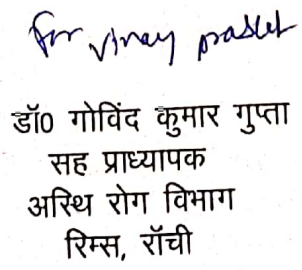 For Vinay
डॉ0 गोविंद कुमार गुप्ता
सह प्राध्यापक
अस्थि रोग विभाग
रिम्स, रॉची